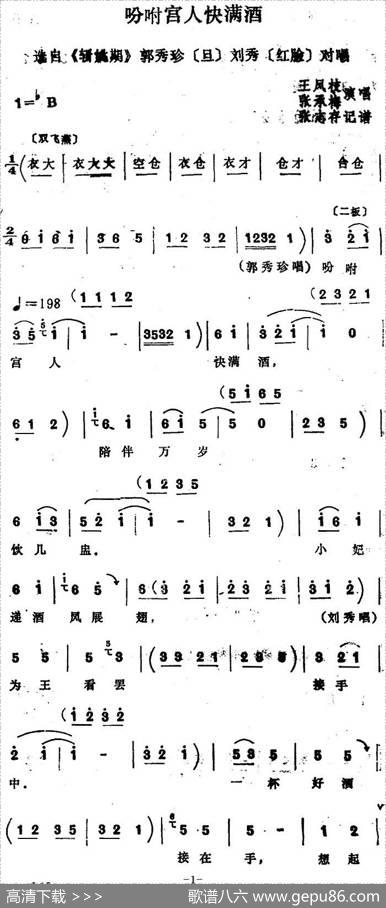 吩咐宫人快满酒
选自《斩姚期》郭秀珍〔旦〕刘秀〔红脸〕对唱
王凤枝
张承梅 演唱
张志存 记谱
1=♭B
〔双飞燕〕
1/4 ( 衣大 | 衣大大 | 空仓 | 衣仓 | 衣才 | 仓才 | 仓 |
〔二板〕
2/4 0 1 6 1 | 3 6 5 | 1 2 3 2 | 1232 1 ) | 3 2 1 |
(郭秀珍唱) 吩咐
♩=198 ( 1 1 1 2 ) ( 2 3 2 1 )
3 5 1 | 1 - | 3532 1 ) | 6 1 | 3 2 1 | 1 0
宫人 快满酒,
( 5 1 6 5 )
6 1 2 ) | 6. 1 | 6 1 5 | 5 0 | 2 3 5 )
陪伴万岁
( 1 2 3 5 )
6 1 3 | 5 2 1 | 1 - | 3 2 1 ) | 1 6 1
饮几盅。 小妃
6 1 | 6 5 | 6 ( 3 2 1 | 2 3 2 1 | 3 1 2 )
递酒凤展翅, (刘秀唱)
5 5 | 5 3 | ( 3 3 2 1 | 2 3 5 ) | 3 2 1
为王看罢 接手
( 1 2 3 2 )
2 1 | 1 - | 3 2 1 ) | 5 3 5 | 5 5
中。 一杯好酒
( 1 2 3 5 | 3 2 1 ) | 5 5 | 5 - | 1 2
接在手, 想起
-1-
高清下载 >>>
歌谱八六 www.gepu86.com